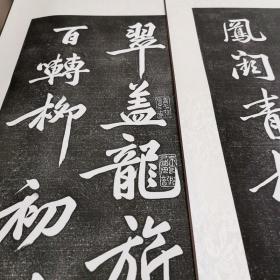 鳳闕青
翠蓋龍旂
百囀柳初